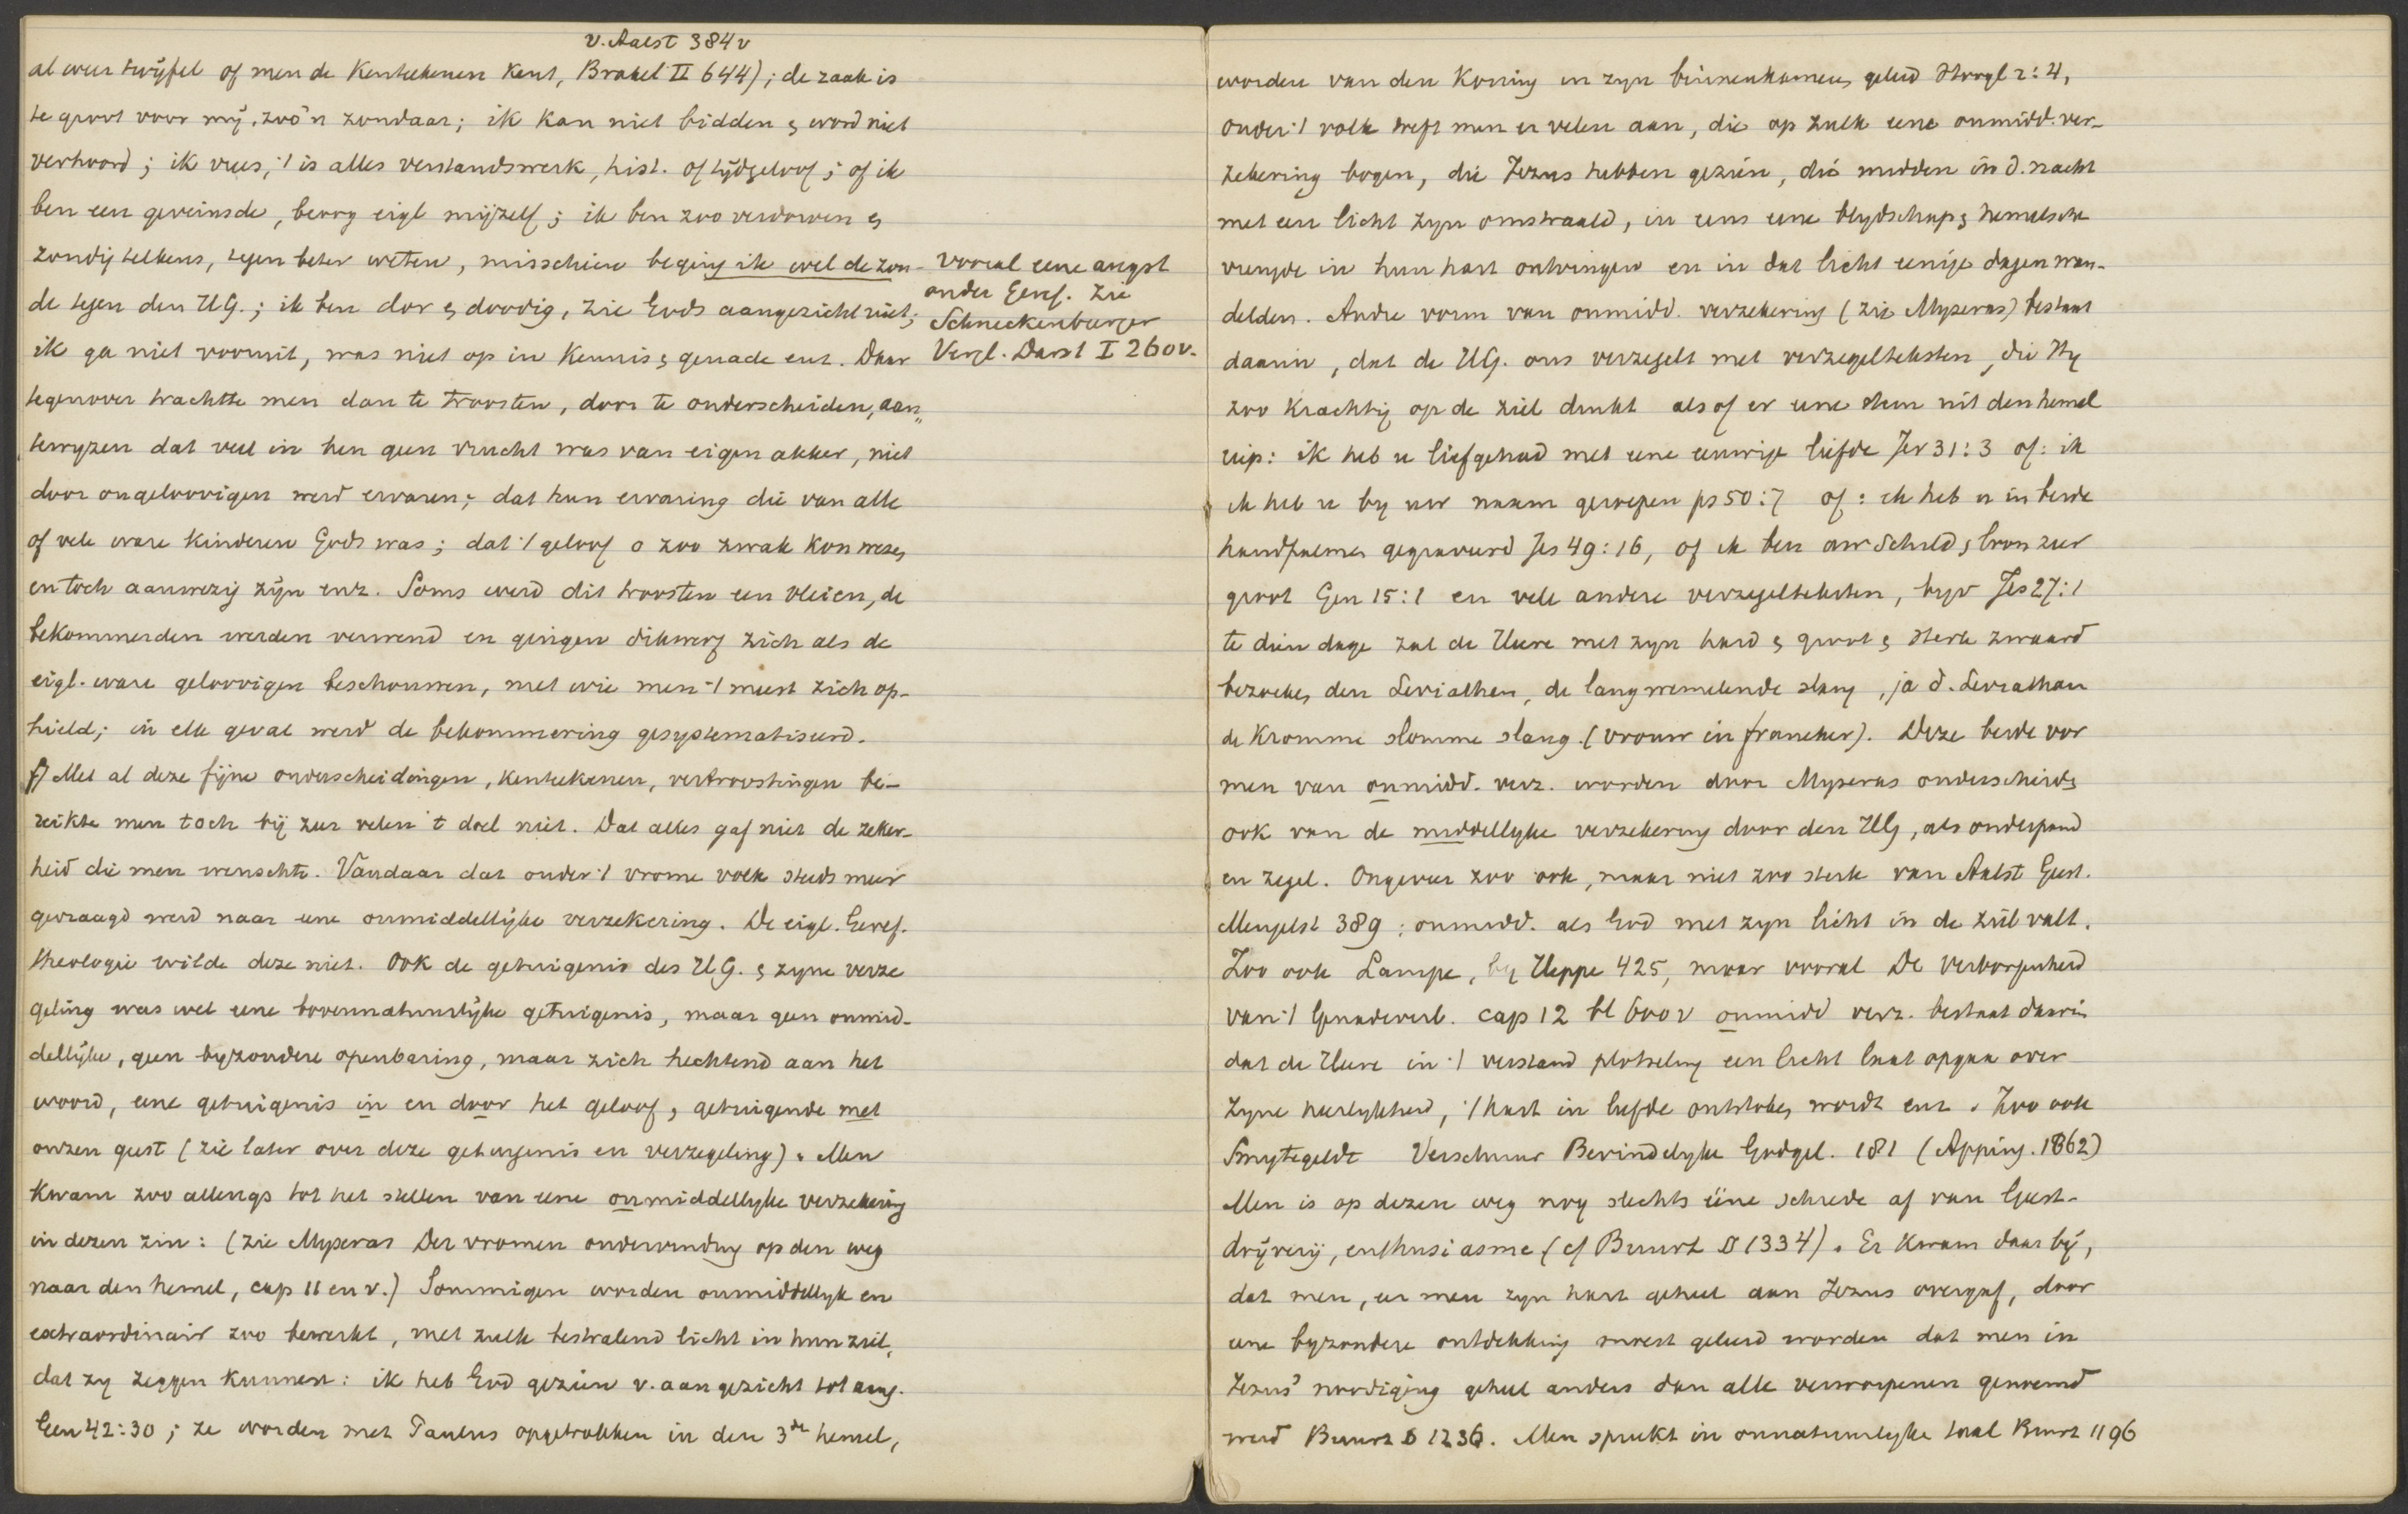 v. Aalst 384v
al weer twijfel of men de Kenteekenen Kent, Brakel II 644); de zaak is
te groot voor mij, zoo'n zondaar; ik kan niet bidden & word niet
verhoord; ik vrees, 't is alles verstandswerk, hist. of tijdgeloof; of ik
ben een geveinsde, bedrog eigl mijzelf; ik ben zoo verdorven &
zondig telkens, tegen beter weten, misschien beging ik wel de zon-
de tegen den HG.; ik ben dor & doodig, zie Gods aangezicht niet;
ik ga niet vooruit, was niet op in Kennis & genade enz. Daar
tegenover trachtte men dan te troosten, door te onderscheiden, aan
tewyzen dat veel in hen geen vrucht was van eigen akker, niet
door ongeloovigen werd ervaren; dat hun ervaring die van alle
of vele ware Kinderen Gods was; dat 't geloof o zoo zwak kon wezen
en toch aanwezig zijn enz. Soms werd dit troosten een vleien, de
bekommerden werden verwend en gingen dikwerf zich als de
eigl. ware geloovigen beschouwen, met wie men 't meest zich op-
hield; in elk geval werd de bekommering gesystematiseerd.
f) Met al deze fijne onderscheidingen, Kenteekenen, vertroostingen be-
reikte men toch bij zeer velen 't doel niet. Dat alles gaf niet de zeker-
heid die men wenschte. Vandaar dat onder 't vrome volk steeds meer
gevraagd werd naar eene onmiddellijke verzekering. De eigl. Geref.
theologie wilde deze niet. Ook de getuigenis des HG. & zyne verze
geling was wel eene bovennatuurlijke getuigenis, maar geen onmid-
dellijke, geen byzondere openbaring, maar zich hechtend aan het
woord, eene getuigenis in en door het geloof, getuigende met
onzen geest (zie later over deze getuigenis en verzegeling). Men
Kwam zoo allengs tot het stellen van eene onmiddellyke verzekering
in dezen zin: (zie Myseras Der vromen ondervinding op den weg
naar den hemel, cap 11 en v.) Sommigen worden onmiddellyk en
extraordinair zoo bewerkt, met zulk bestralend licht in hun ziel,
dat zy zeggen Kunnen: ik heb God gezien v. aangezicht tot aang.
Gen 42:30; ze worden met Paulus opgetrokken in den 3de hemel,
vooral eene angst
onder Geref. Zie
Schneckenburger
Vergl. Darst I 260v.
worden van den Koning in zyn binnenkamers geleid Hoogl 2:4,
onder 't volk treft men er velen aan, die op zulk eene onmidd. ver-
zekering bogen, die Jezus hebben gezien, die midden in d. nacht
met een licht zyn omstraald, in eens eene blydschap & hemelsche
vreugde in hun hart ontvingen en in dat licht eenige dagen wan-
delden. Andre vorm van onmidd. verzekering (zie Myseras) bestaat
daarin, dat de HG. ons verzegelt met verzegelteksten, die Hy
zoo Krachtig op de ziel drukt als of er eene stem uit den hemel
riep: ik heb u liefgehad met eene eeuwige liefde Jer 31:3 of: ik
ik heb u by uw naam geroepen ps 50:7 of: ik heb u in beide
handpalmen gegraveerd Jes 49:16, of ik ben uw Schild, loon zeer
groot Gen 15:1 en vele andere verzegelteksten, bijv Jes 27:1
te dien dage zal de Heere met zyn hard & groot & sterk zwaard
bezoeken den Leviathan, de langwemelende slang, ja d. Leviathan
de Kromme slomme slang. (vrouw in franeker). Deze beide vor
men van onmidd. verz. worden door Myseras onderscheiden
ook van de middellyke verzekering door den HG, als onderpand
en zegel. Ongeveer zoo ook, maar niet zoo sterk van Aalst Geest.
Mengelst 389: onmidd. als God met zyn licht in de ziel valt.
Zoo ook Lampe, by Heppe 425, maar vooral De Verborgenheid
van 't Genadeverb. cap 12 bl 600v onmidd verz. bestaat daarin
dat de Heere in 't verstand plotseling een licht laat opgaan over
zyne heerlykheid, 't hart in liefde ontstoken wordt enz. Zoo ook
Smytegeldt Verschuur Bevindelyke Godgel. 181 (Apping. 1862)
Men is op dezen weg nog slechts ééne schrede af van Geest-
dryvery, enthusiasme (cf Buurt II 1334). Er Kwam daar bij,
dat men, eer men zyn hart geheel aan Jezus overgaf, door
eene byzondere ontdekking moest geleerd worden dat men in
Jezus' noodiging geheel anders dan alle verworpenen genoemd
werd Buurt § 1236. Men spreekt in onnatuurlyke taal Buurt 1196